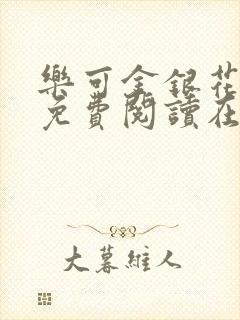 樂可金銀花
免費閱讀在
大暮維人